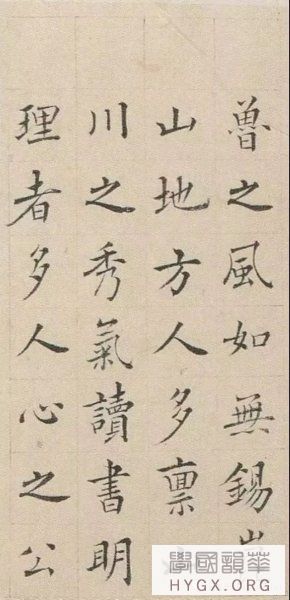 魯之風如無錫崑
山地方人多禀
川之秀氣讀書明
理者多人心之公
學國韻華
HYGX.ORG